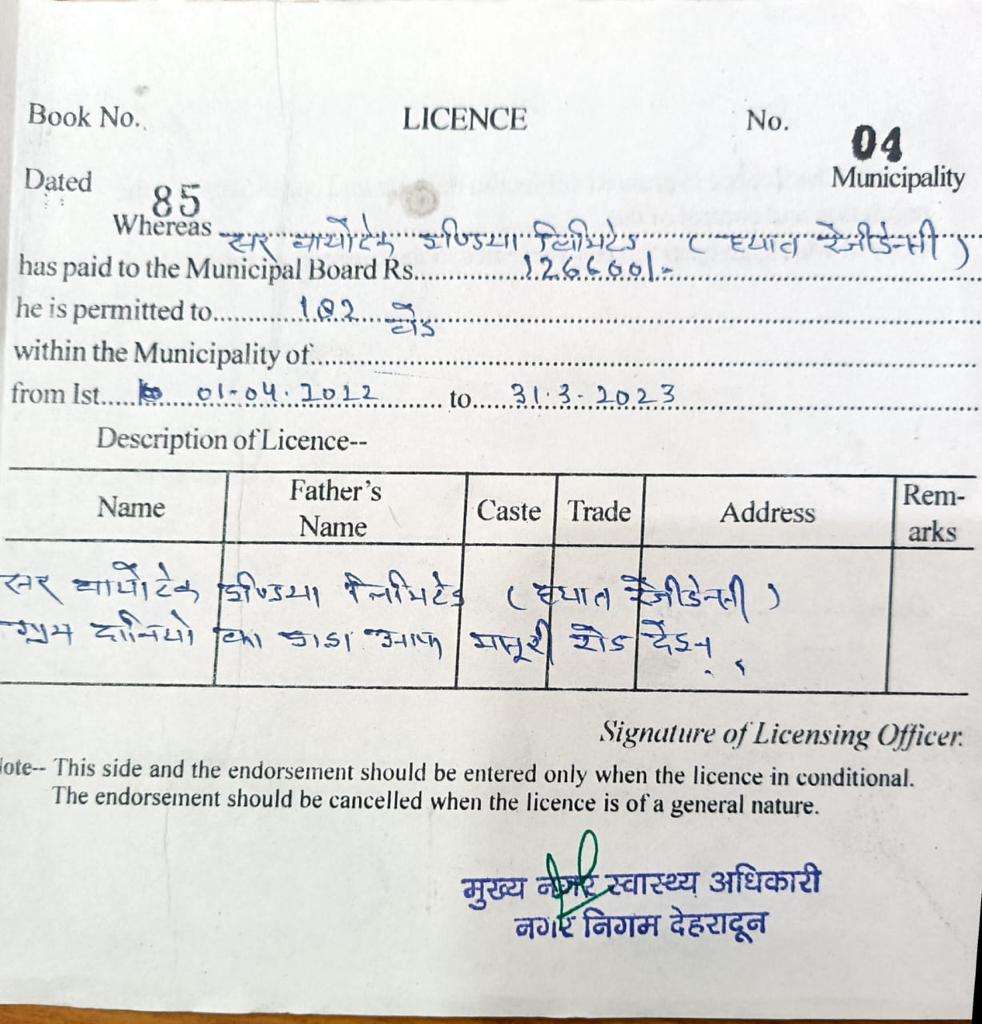 Book No. LICENCE No. 04
Dated 85 Municipality
Whereas सर बायोटेक इण्डिया लिमिटेड (हयात रेजीडेन्सी)
has paid to the Municipal Board Rs. 126600/-
he is permitted to 102 बेड
within the Municipality of
from Ist. 01-04.2022 to 31.3-2023
Description of Licence--
Name Father's Name Caste Trade Address Rem-arks
सर बायोटेक इण्डिया लिमिटेड (हयात रेजीडेन्सी)
ग्राम दानियो का डाडा आफ मसूरी रोड देदून
Signature of Licensing Officer.
ote-- This side and the endorsement should be entered only when the licence in conditional.
The endorsement should be cancelled when the licence is of a general nature.
मुख्य नगर स्वास्थ्य अधिकारी
नगर निगम देहरादून